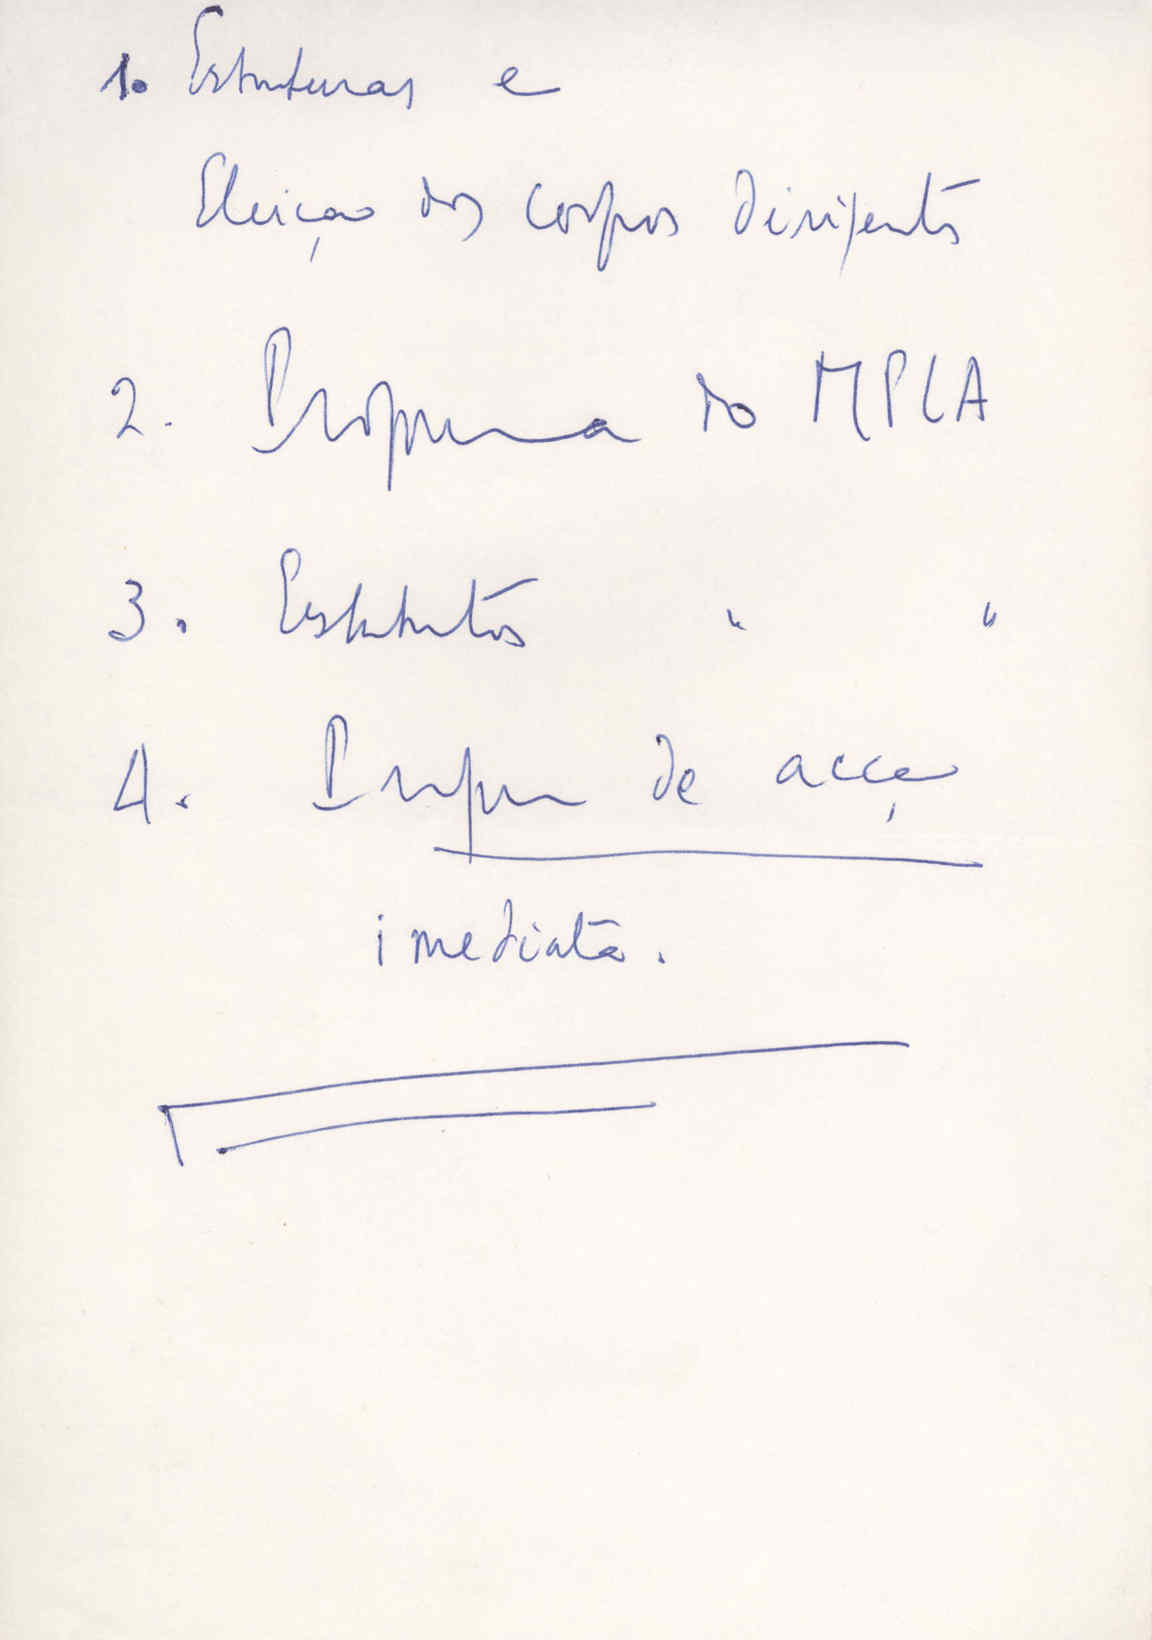 1. Estruturas e
Eleição dos corpos dirigentes
2. Programa do MPLA
3. Estatutos " "
4. Programa de acção
imediata.